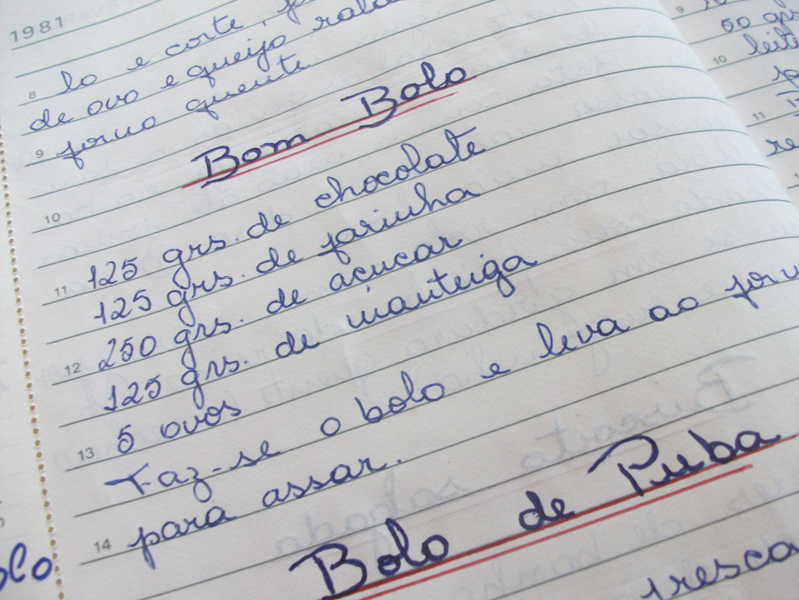 1981
8 lo e corte,
de ovo e queijo
9 forno quente
Bom Bolo
10
125 grs. de chocolate
11 125 grs. de farinha
250 grs. de açucar
12 125 grs. de manteiga
5 ovos
13 Faz-se o bolo e leva ao
14 para assar.
Bolo de Puba
fresca
50
10
11